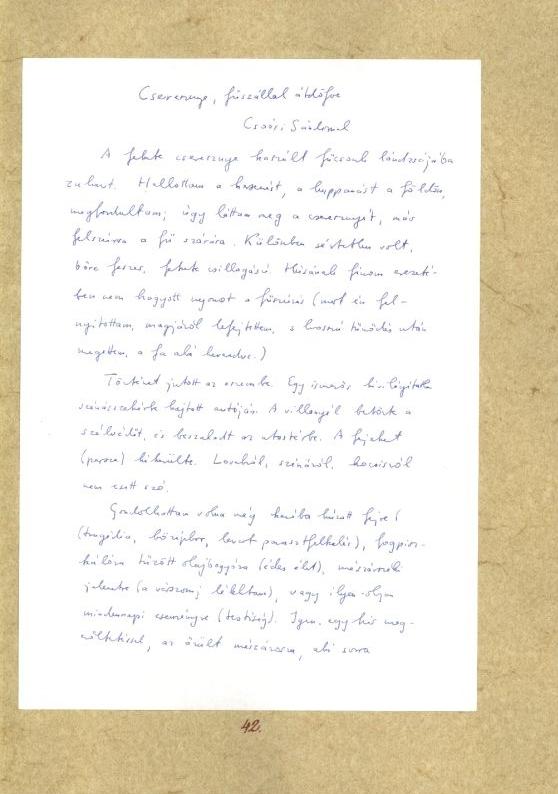 Cseresznye, fűszállal átdöfve
Csoóri Sándornak
A fekete cseresznye kaszált fűcsonk lándzsájába
zuhant. Hallottam a huppanást a földön,
megfordultam; úgy láttam meg a cseresznyét, már
felszúrva a fű szárára. Különben sértetlen volt,
bőre feszes, fekete csillogású. Húsának finom erezeté-
ben nem hagyott nyomot a fűszúrás (mert én fel-
nyitottam, magjáról lefejtettem, s hosszú tűnődés után
megettem, a fa alá heveredve.)
Történet jutott az eszembe. Egy ismerős kivilágítatlan
szénásszekérbe hajtott autóján. A villanyél betörte a
szélvédőt, és beszaladt az utastérbe. A fejeket
(persze) kikerülte. Lovakról, szénáról, kocsisról
nem esett szó.
Gondolhattam volna még karóba húzott fejre
(tragédia, középkor, levert parasztfelkelés), fogpisz-
kálóra tűzött olajbogyóra (édes élet),
jelentre (a lélektan), vagy ilyen-olyan
mindennapi eseményre (testiség). Igen, egy kis meg-
az őrült mészárosra, aki sorra
42.